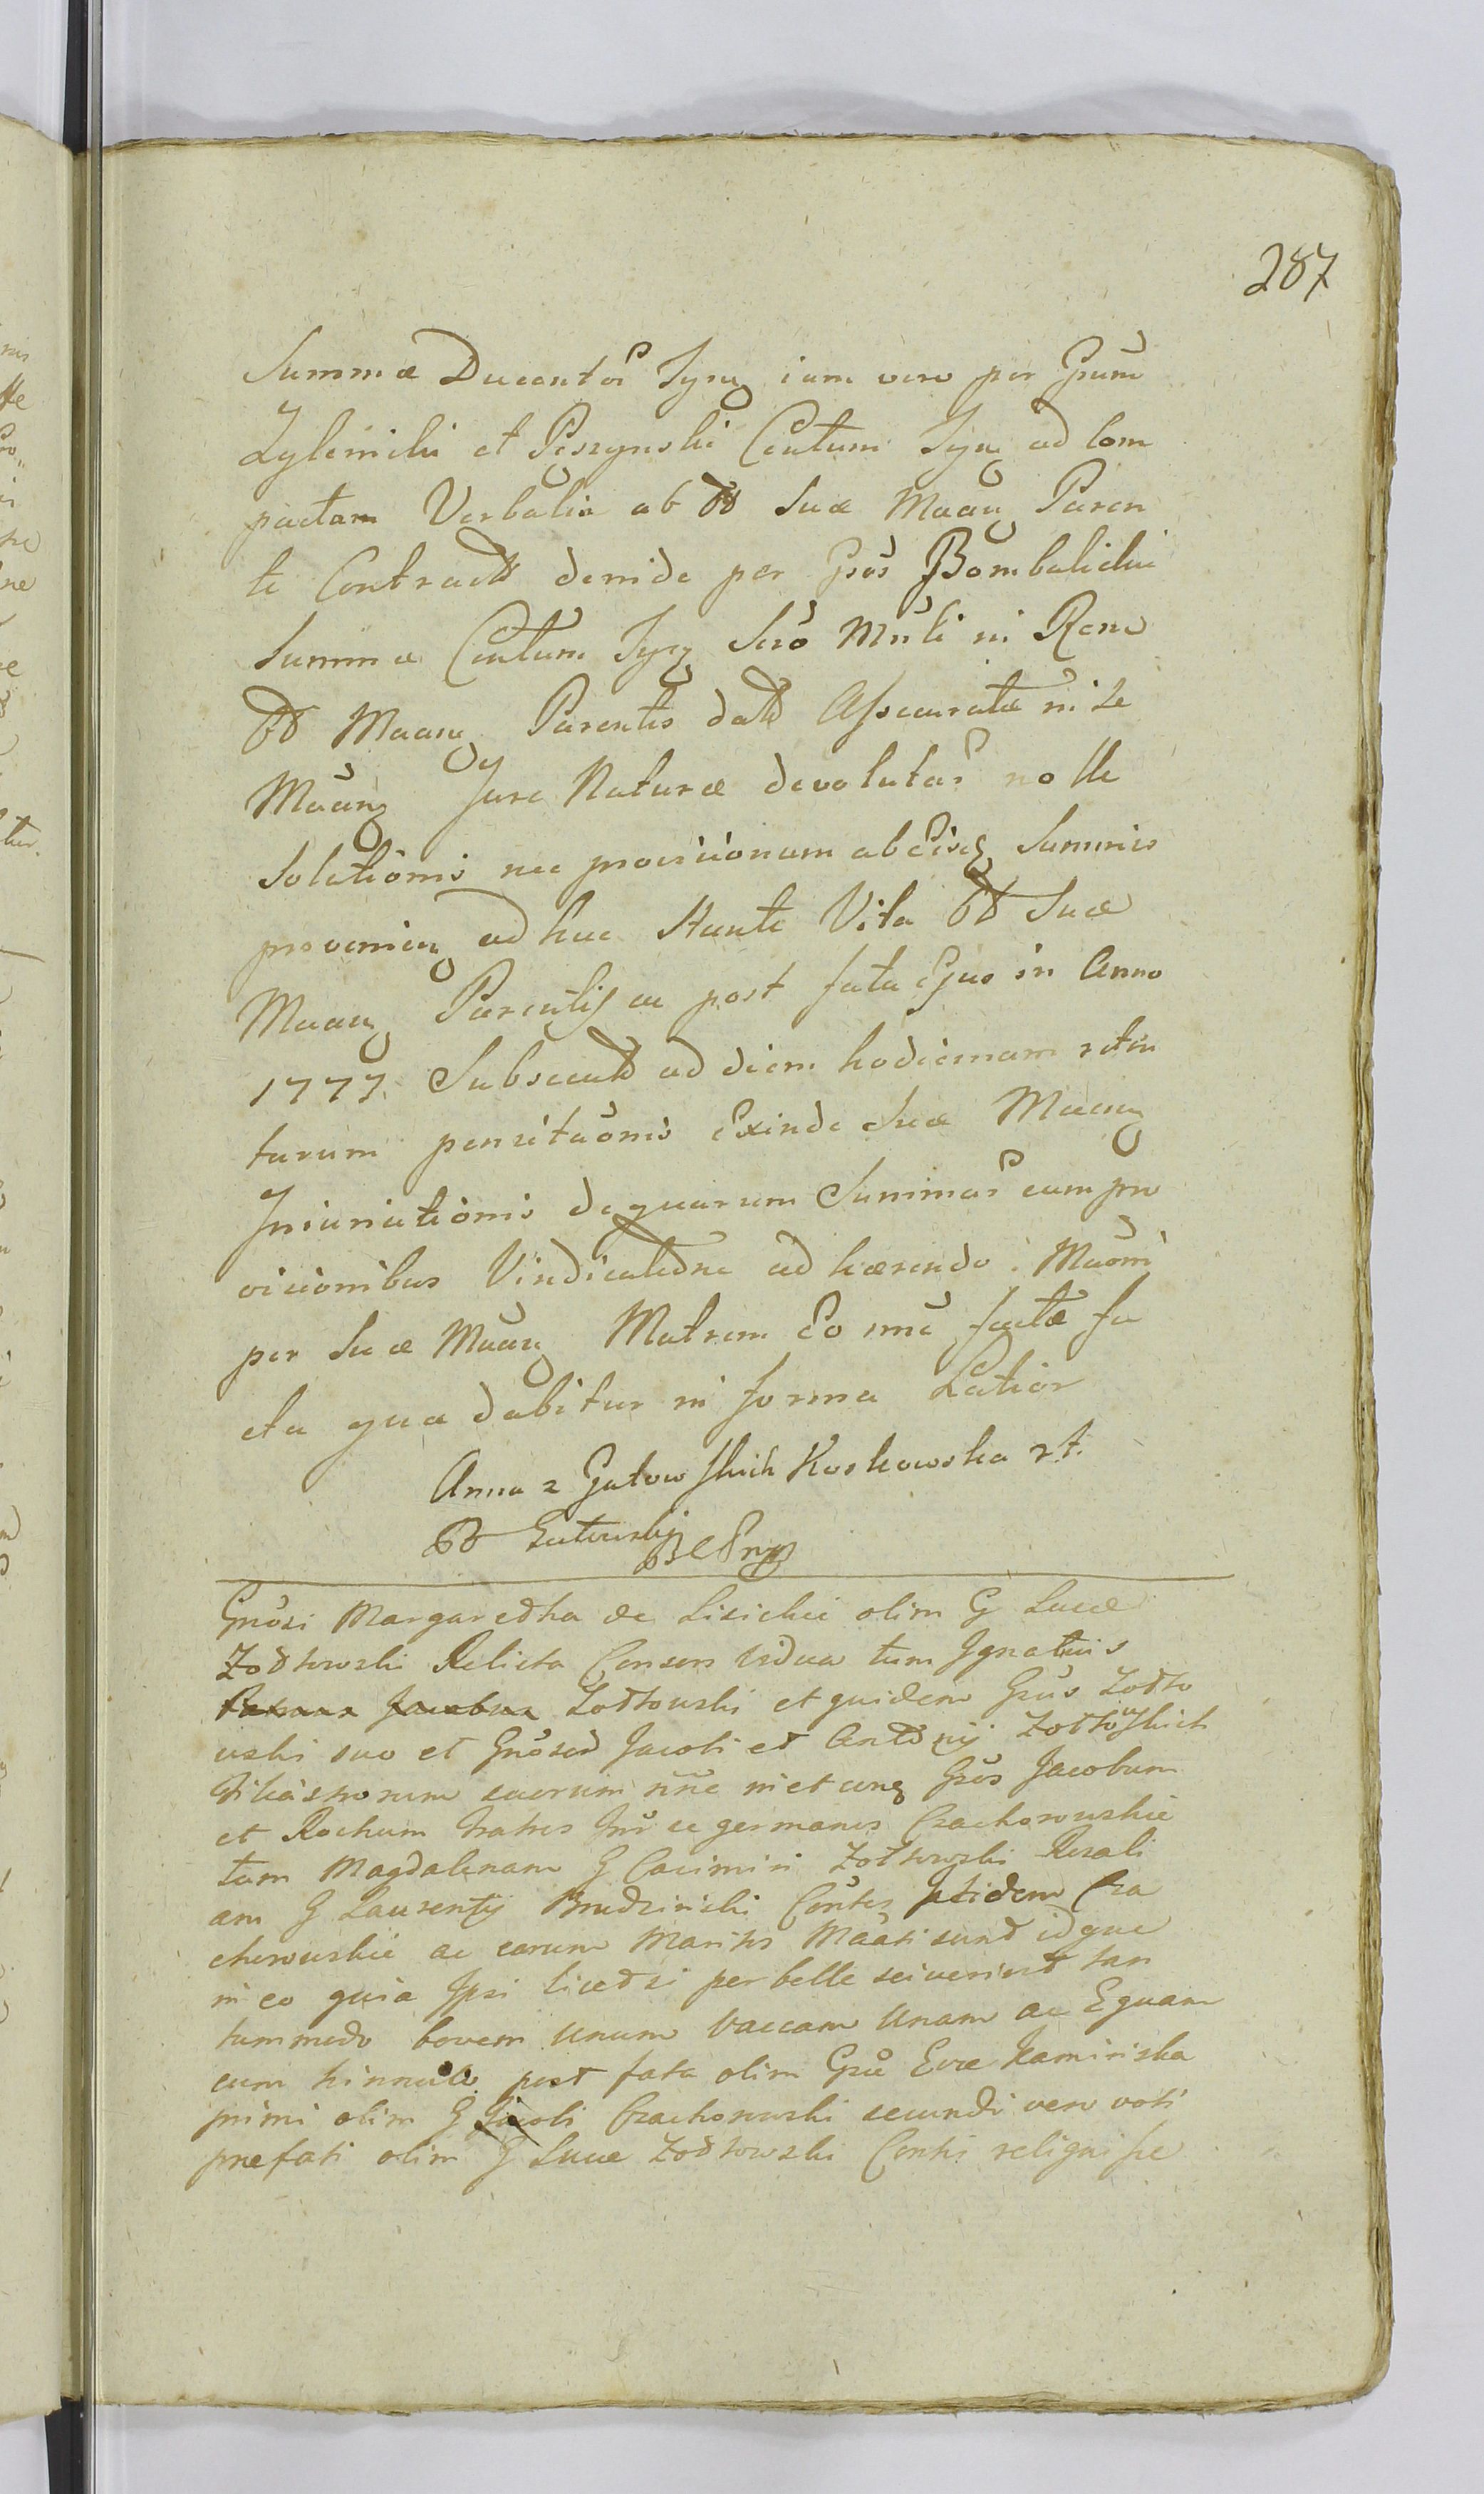 287
Summæ Ducentor Tynf iam vero per Grum
Zylinski et Pęszynski Centum Tynf ad com
pactam Verbalis ab OO Suæ Maan Paren
te Contractt deinde per Gros Bombalicki
Summæ Centum Tynf Scro Mnli in Rem
OO Maang Parentis datt Assecuratæ in Se
Maang Jure Naturæ devolutar nolle
Solutionis nec provisionum ab Eisq Summis
provenien ad huc Stante Vita OO Suæ
Maang Parentis ac post fata Ejus in Anno
1777. Subsecutt ad diem hodiernam reten
tarum pensitaonis Exinde Suæ Maang
Iniuriationis de quarum Summar cum pro
visionibus Vindicatedne ad hærendo Maomi
per Suæ Maang Matrem Eo nne factæ fa
cta qua dabitur in forma Latior
Anna z Gutowskich Koskowska rt.
OO Gutowskij
Gnosi Margaretha de Lisickie olim G Lucæ
Zołtowski Relicta Consors vidua tum Ignatius
Zołtowski et quidem Grus Zołto
wski suo et Gnosor Jacobi et Antonij Zołtowskich
Filiastrorum suorum nne in et cung Gros Jacobum
et Rochum fratres Inr se germanos Czachorowskie
tum Magdalenam G Casimiri Zołtowski Rosali
am G Laurentij Brudzinski Contes Itidem Cza
chorowskie ac earum Maritos Maati sunt idque
in eo quia Ipsi licet si perbelle sciverint tan
tummodo bovem Unum Vaccam Unam ac Equam
cum hinnulo post fata olim Græ Evæ Kaminska
primi olim G Jacobi Czachorowski secundi vero voti
præfati olim G Lucæ Zołtowski Contis reliquisse